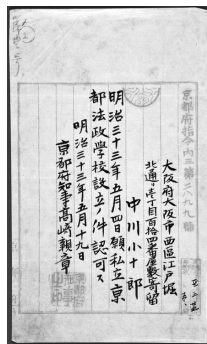 京都府指令內三第二八九九號
大阪府大阪市西區江戸堀
北通壱丁目百拾四番屋敷寄留
中川小十郎
明治三十三年五月四日願私立京
都法政學校設立ノ件認可ス
明治三十三年五月十九日
京都府知事高崎親章